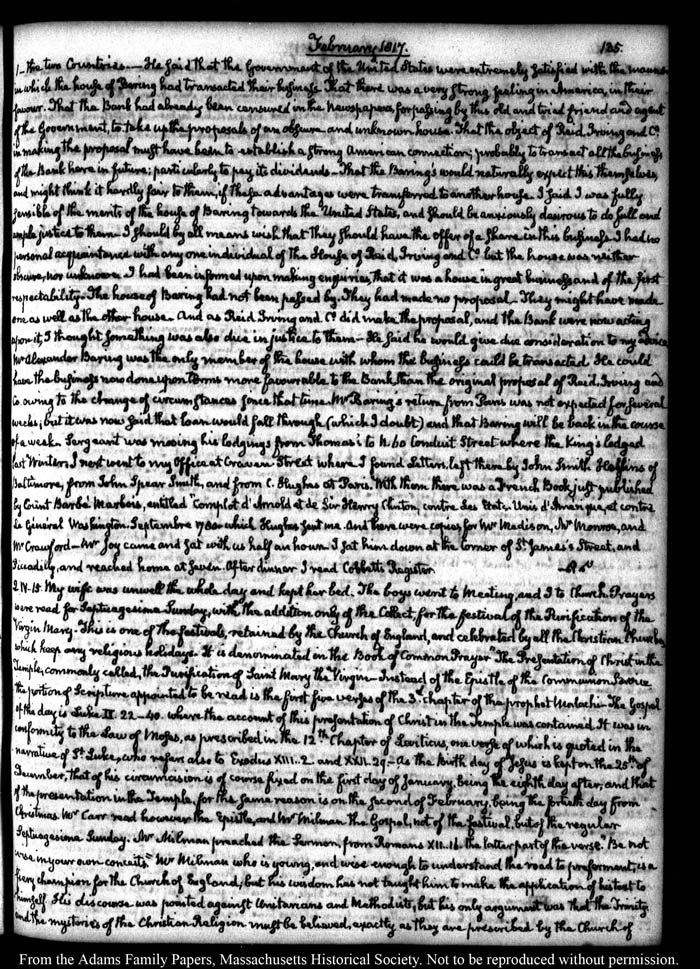 February 1817.
125.
1- the two Countries.— He said that the Government of the United States were extremely satisfied with the manner
in which the house of Baring had transacted their business. That there was a very strong feeling in America, in their
favour. That the Bank had already been censured in the Newspapers, for passing by this old and tried friend and agent
of the Government, to take up the proposals of an obscure and unknown house. That the object of Reid, Irving and Co
in making the proposal must have been to establish a strong American connection; probably to transact all the business
of the Bank here in future; particularly to pay its dividends.— That the Barings would naturally expect this themselves,
and might think it hardly fair to them, if these advantages were transferred to another house. I said I was fully
sensible of the merits of the house of Baring towards the United States, and should be anxiously desirous to do full and
ample justice to them. I should by all means wish that they should have the offer of a share in this business. I had no
personal acquaintance with any one individual of the House of Reid, Irving and Co. but the house was neither
obscure, nor unknown. I had been informed upon making enquiries that it was a house in great business and of the first
respectability. The house of Baring had not been passed by. They had made no proposal— They might have made
one as well as the other house. And as Reid Irving and Co. did make the proposal, and the Bank were now acting
upon it, I thought something was also due in justice to them— He said he would give due consideration to my advice
Mr Alexander Baring was the only member of the house with whom the business could be transacted. He could
have the business now done upon terms more favourable to the Bank, than the original proposal of Reid, Irving and
Co. owing to the change of circumstances since that time. Mr Baring's return from Paris was not expected for several
weeks; but it was now said that loan would fall through (which I doubt) and that Baring will be back in the course
of a week. Sergeant was moving his lodgings from Thomas's to N. 60 Conduit Street where the King's lodged
last Winter. I next went to my Office at Craven Street where I found Letters, left there by John Smith Hoffins of
Baltimore, from John Spear Smith, and from C. Hughes at Paris. With them there was a French Book just published
by Count Barbé Marbois, entitled "Complot d'Arnold et de Sir Henry Clinton, contre les Etats, Unis d'Amerique, et contre
le General Washington. Septembre 1780 which Hughes sent me. And there were copies for Mr Madison, Mr Monroe, and
Mr Crawford— Mr Joy came and sat with us half an hour. I sat him down at the corner of St. James's Street, and
Piccadilly, and reached home at Seven. After dinner I read Cobbett's Register.
2. IV-15. My wife was unwell the whole day and kept her bed. The boys went to Meeting, and I to Church. Prayers
were read for Septuagesima Sunday, with the addition only of the Collect, for the festival of the Purification of the
Virgin Mary. This is one of the festivals, retained by the Church of England, and celebrated by all the Christian Churches,
which keep any religious holidays. It is denominated in the Book of Common Prayer "The Presentation of Christ in the
Temple, commonly called, the Purification of Saint Mary the Virgin— Instead of the Epistle of the Communion Service
the portion of Scripture appointed to be read is the first five verses of the 3d. chapter of the prophet Malachi— The Gospel
of the day is Luke II. 22-40. where the account of this presentation of Christ in the Temple was contained. It was in
conformity to the Law of Moses, as prescribed in the 12th Chapter of Leviticus, one verse of which is quoted in the
narrative of St. Luke, who refers also to Exodus XIII. 2. and XXII. 29.— As the birth day of Jesus is kept on the 25th. of
December, that of his circumcision is of course fixed on the first day of January, being the eighth day after, and that
of the presentation in the Temple, for the same reason is on the second of February, being the fortieth day from
Christmas. Mr Carr read however the Epistle, and Mr Milman the Gospel, not of the festival, but of the regular
Septuagesima Sunday. Mr Milman preached the Sermon, from Romans XII. 16. the latter part of the verse. Be not
wise in your own conceits." Mr Milman who is young, and wise enough to understand the road to preferment, is a
fiery champion for the Church of England, but his wisdom has not taught him to make the application of his text to
himself. His discourse was pointed against Unitarians and Methodists, but his only argument was that the Trinity
and the mysteries of the Christian Religion must be believed, exactly as they are prescribed by the Church of
From the Adams Family Papers, Massachusetts Historical Society. Not to be reproduced without permission.